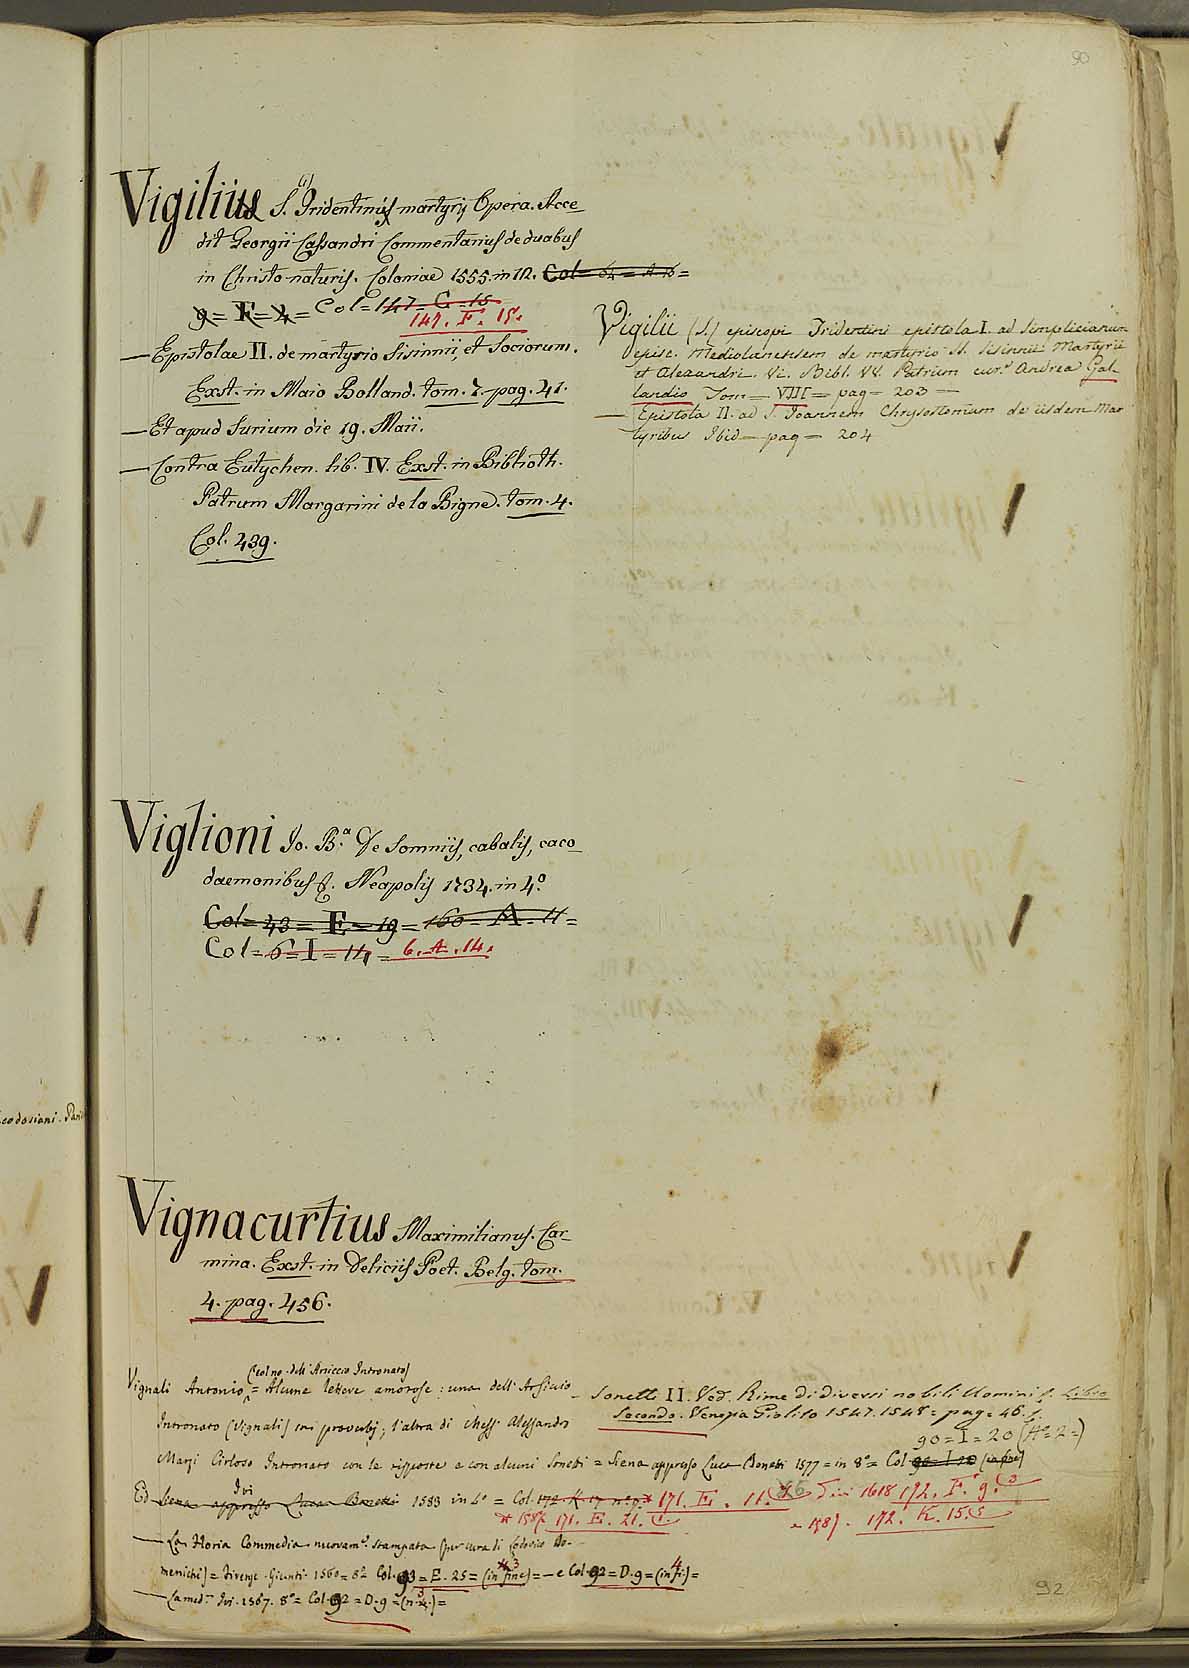 90
Vigilii S. Tridentini martyris Opera. Acce-
dit Georgii Cassandri Commentarius de duabus
in Christo naturis. Coloniae 1555. in 12. Col= 64 = A 16=
9= F= 4= Col= 147= C= 15
147. F. 15.
— Epistolae II. de martyrio Sisinnii, et Sociorum.
Exst. in Maio Bolland. tom. 7. pag. 41.
— Et apud Surium die 19. Maii.
— Contra Eutychen. lib. IV. Exst. in Biblioth.
Patrum Margarini de la Bigne. tom. 4.
Col. 439.
Vigilii (S.) episcopi Tridentini epistola I. ad Simplicianum
episc. Mediolanensem de martyrio SS. Sisinnii Martyrii
et Alexandri. Vi. Bibl. VV. Patrum cur. Andrea Gal-
landio Tom= VIII= pag= 203 —
— Epistola II. ad S. Joannem Chrysostomum de iisdem Mar
tyribus Ibid= pag= 204
Viglioni Jo. B.a De Somniis, cabalis, caco-
daemonibus &. Neapolis 1734. in 4.o
Col= 43= E= 19= 160= A. 11=
Col= 6= I= 14= 6. A. 14.
codosiani. Pari
Vignacurtius Maximilianus. Car-
mina. Exst. in deliciis Poet. Belg. tom.
4. pag. 456.
(col no. dell'Arsiccio Intronato)
Vignali Antonio = Alcune lettere amorose: una dell'Arsiccio
Intronato (Vignali) in proverbj; l'altra di Mess. Alessandro
Marzi Cirloso Intronato con le risposte e con alcuni Sonetti = Siena appresso Luca Bonetti 1577= in 8o= Col 90= I 20 (in fine)
Ivi
Ed Siena appresso Luca Bonetti 1583 in 4o = Col. 172. K. 17 171. E. 11. Ivi 1618 192. F. 9.
1587 171. E. 21.
= 1587. 172. K. 15.
— La Floria Commedia nuovam.e stampata (per cura di Lodovico Do-
menichi) = Firenze. Giunti. 1560= 8o Col. 93= E. 25= (in fine)= — e Col. 92= D. 9= (in fi:)=
— La med.ma Ivi. 1567. 8o= Col. 92= D. 9=
— Sonetti II. Ved. Rime di diversi nobili Uomini &. Libro
Secondo. Venezia Giolito 1547. 1548= pag= 46.
90= I= 20
92